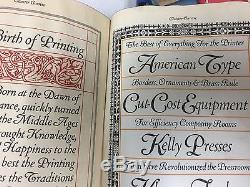 Cloister Borders
Birth of Printing
Born at the Dawn of
naissance, quickly turned
the Middle Ages
brought Knowledge,
Happiness to the
best the Printing
the Traditions
The Best of Everything For the Printer
American Type
Borders, Ornaments & Brass Rule
Cut-Cost Equipment
For Efficiency Company Rooms
Kelly Presses
Have Revolutionized the Pressroom